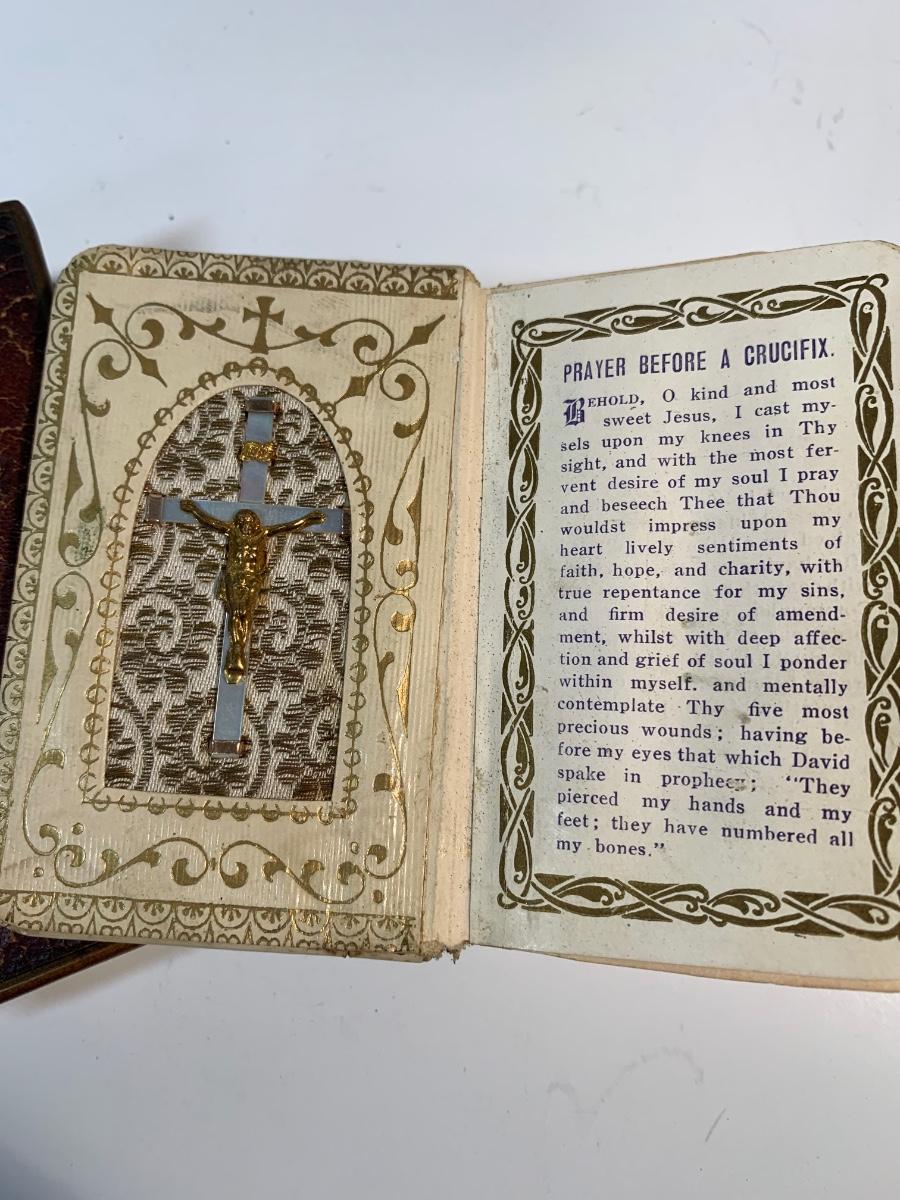 PRAYER BEFORE A CRUCIFIX.
BEHOLD, O kind and most
sweet Jesus, I cast my-
sels upon my knees in Thy
sight, and with the most fer-
vent desire of my soul I pray
and beseech Thee that Thou
wouldst impress upon my
heart lively sentiments of
faith, hope, and charity, with
true repentance for my sins,
and firm desire of amend-
ment, whilst with deep affec-
tion and grief of soul I ponder
within myself. and mentally
contemplate Thy five most
precious wounds; having be-
fore my eyes that which David
spake in prophecy; "They
pierced my hands and my
feet; they have numbered all
my bones."